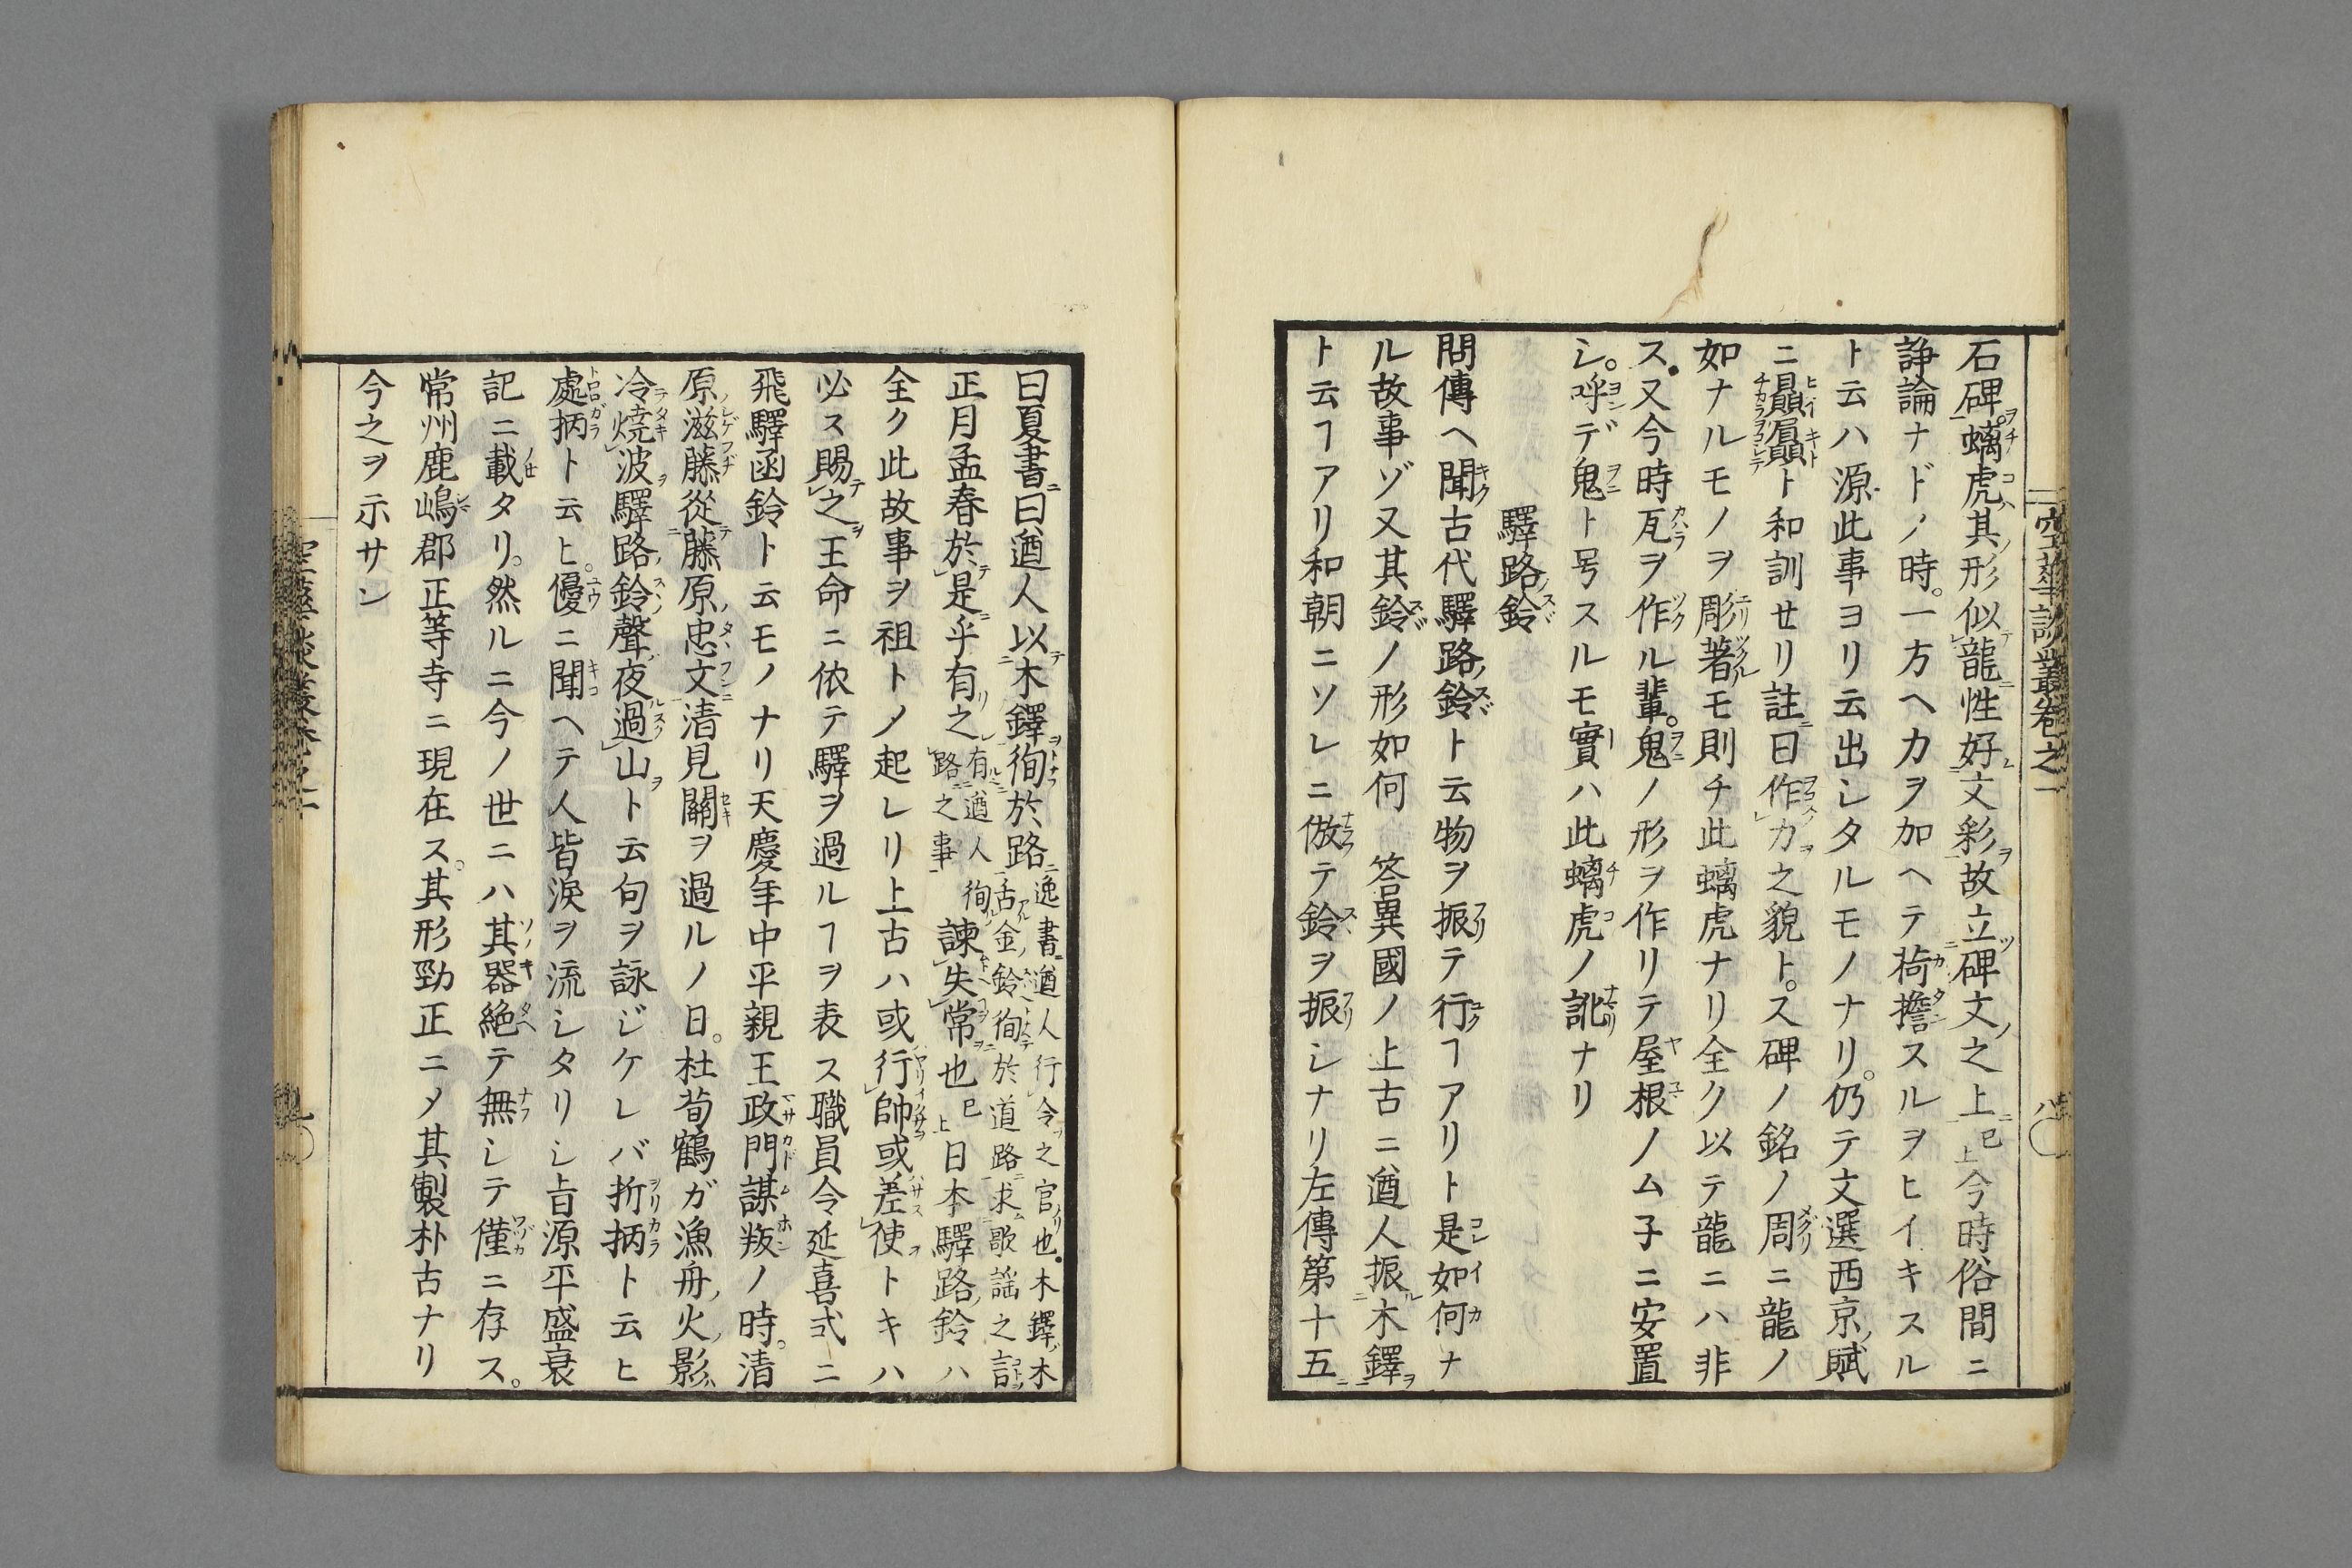 空華談叢卷之一
石碑。螭虎其形似龍性好文彩故立碑文之上已上今時俗間ニ
諍論ナドノ時。一方ヘカヲ加ヘテ荷擔スルヲヒイキスル
ト云ハ源此事ヨリ云出シタルモノナリ。仍テ文選西京賦
ニ贔屓ト和訓セリ註曰作力之貌ト。ス碑ノ銘ノ周ニ龍ノ
如ナルモノヲ彫著モ則チ此螭虎ナリ全ク以テ龍ニハ非
ス。又今時瓦ヲ作ル輩。鬼ノ形ヲ作リテ屋根ノム子ニ安置
シ。呼デ鬼ト号スルモ實ハ此螭虎ノ訛ナリ
驛路鈴
問傳ヘ聞古代驛路鈴ト云物ヲ振テ行ヿアリト是如何ナ
ル故事ゾ又其鈴ノ形如何 答異國ノ上古ニ遒人振木鐸
ト云ヿアリ和朝ニソレニ倣テ鈴ヲ振シナリ左傳第十五
曰夏書曰、遒人以木鐸徇於路逸書遒人行令之官也。木鐸木舌金鈴徇於道路求歌謠之言
正月孟春於是乎有之有遒人徇路之事諫失常也已上日本驛路鈴ハ
全ク此故事ヲ祖トメ起レリ上古ハ或行帥或差使トキハ
必ス賜之王命ニ依テ驛ヲ過ルヿヲ表ス職員令延喜式ニ
飛驛函鈴ト云モノナリ天慶年中平親王政門謀叛ノ時。清
原滋藤從藤原忠文清見關ヲ過ルノ日。杜荀鶴ガ漁舟火影
冷燒波驛路鈴聲夜過山ト云句ヲ詠ジケレバ折柄ト云ヒ
處柄ト云ヒ。優ニ聞ヘテ人皆淚ヲ流シタリシ旨源平盛衰
記ニ載タリ。然ルニ今ノ世ニハ其器絶テ無シテ僅ニ存ス。
常州鹿嶋郡正等寺ニ現在ス。其形勁正ニメ其製朴古ナリ
今之ヲ示サン